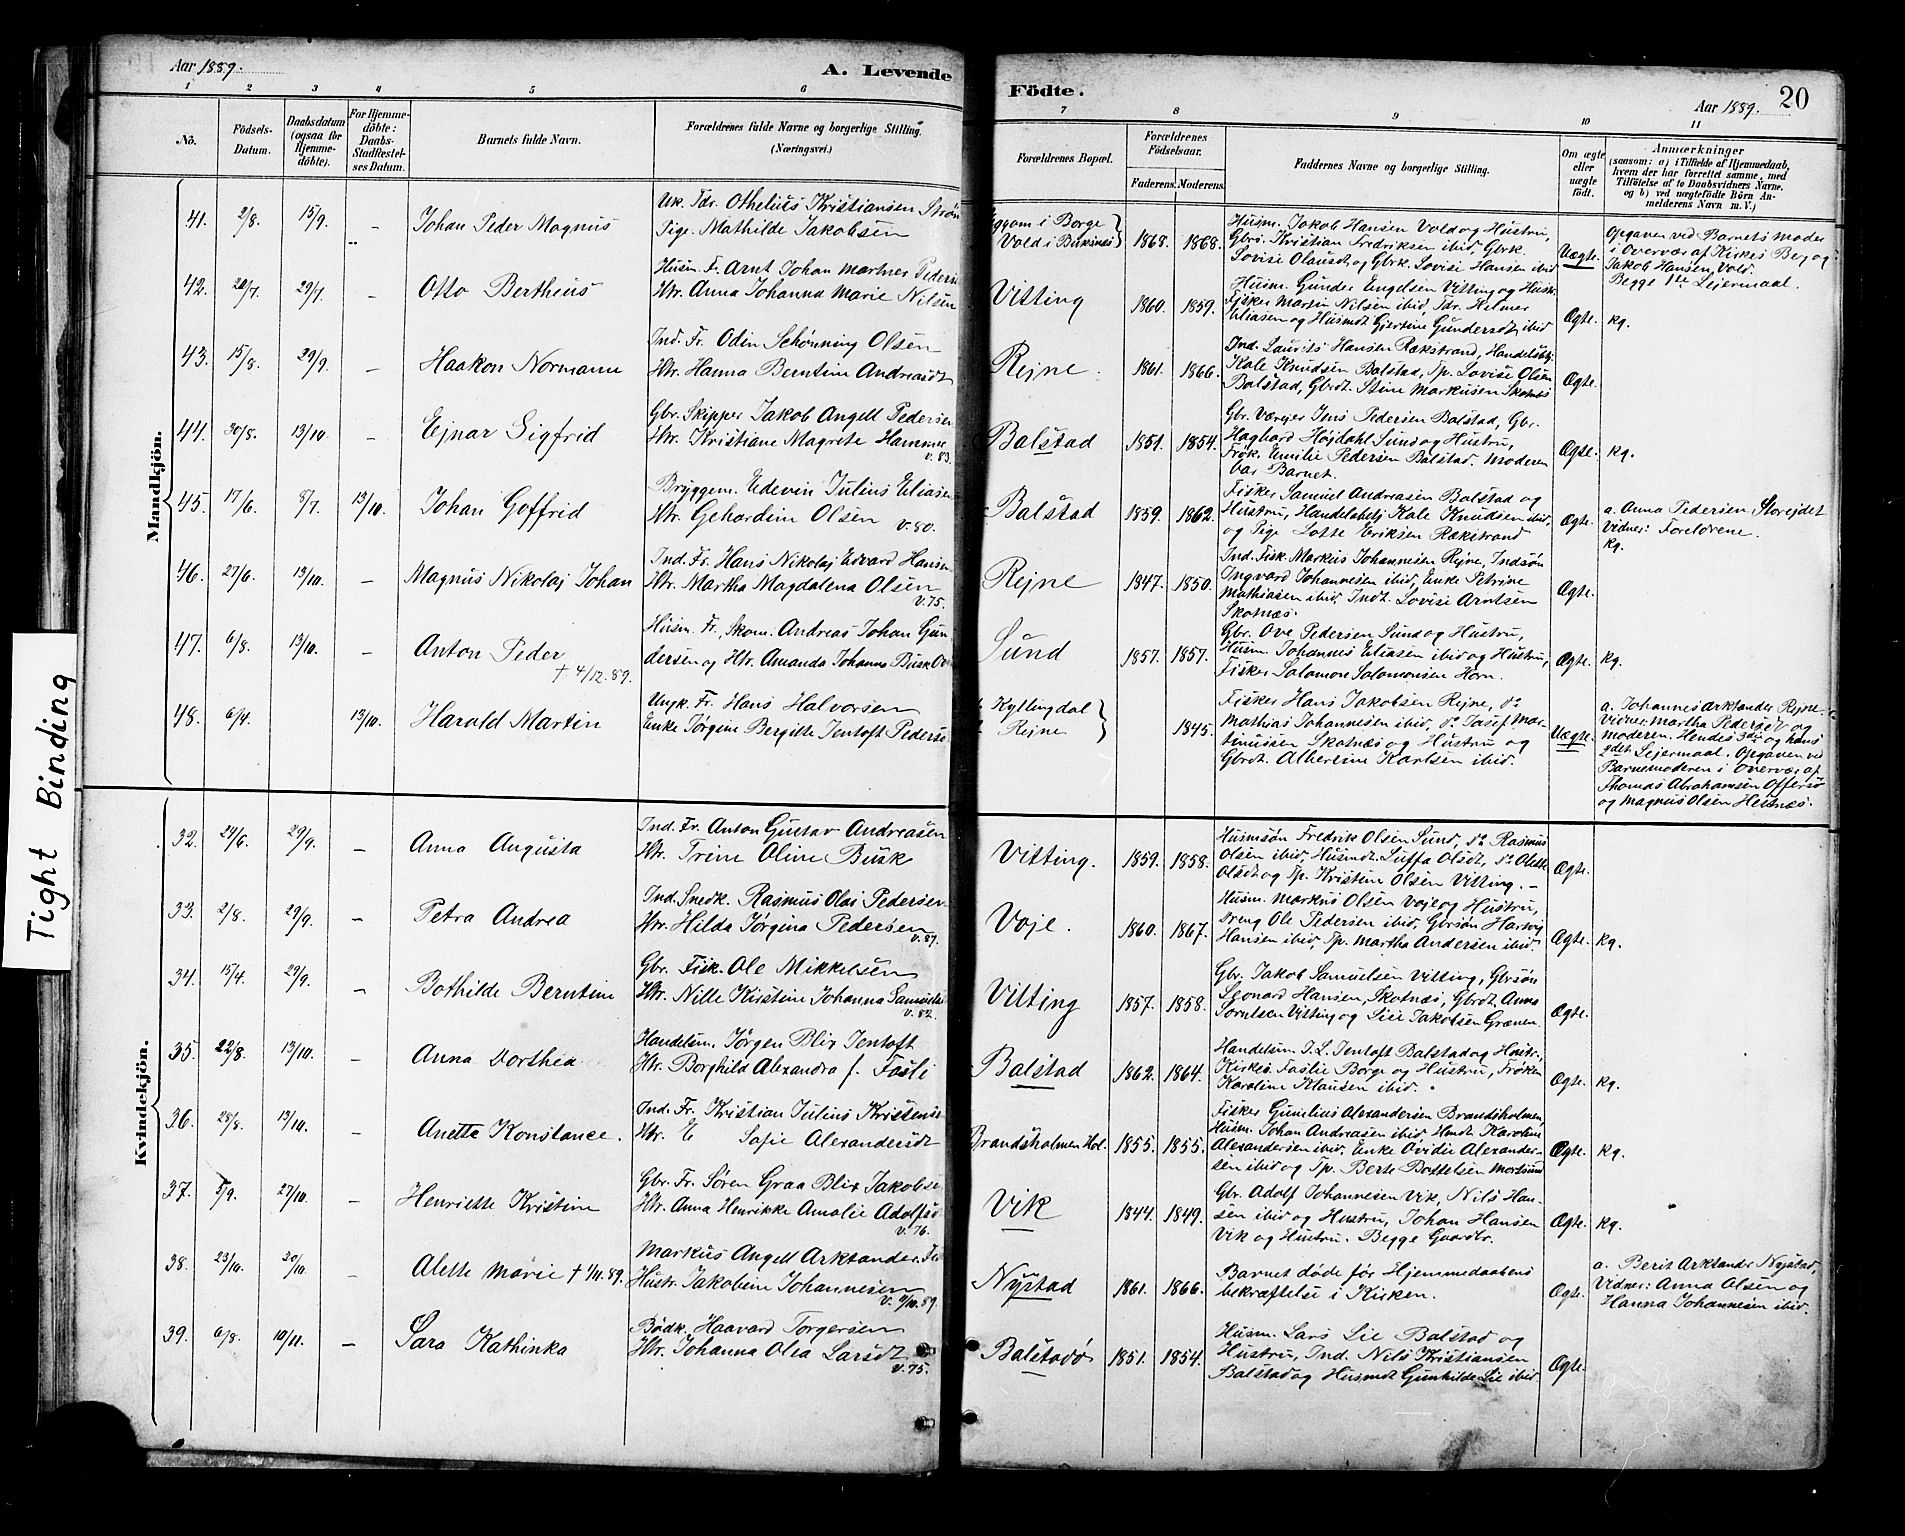 Aar 1889.
A. Levende
1 2 3 4 5 6
No.
Födsels-Datum.
Daabsdatum (ogsaa för Hjemme-döbte).
For Hjemme-döbte: Daabs-Stadfæstelses Datum.
Barnets fulde Navn.
Forældrenes fulde Navne og borgerlige Stilling.
(Næringsvei.)
Mandkjön.
41. 2/8. 15/9. – Johan Peder Magnus
Uk. Fdr. Othelius Kristiansen Strøm
Pige. Mathilde Jakobsen
42. 20/7. 29/9. – Otto Bertheus
Husm. Fr. Arnt Johan Martner Peders
Htr. Anna Johanna Marie Nilsen
43. 15/8. 29/9. – Haakon Normann
Ind. Fr. Odin Schønning Olsen
Htr. Hanna Berntine Andreasdt
44. 30/8. 13/10. – Ejnar Sigfrid
Gbr. Skipper Jakob Angell Pedersen
Htr. Kristiane Magrete Hammer
v. 83.
45. 17/6. 8/7. 13/10. Johan Goffrid
Bryggem. Edevin Julius Eliasen
Htr. Gehardine Olsen v. 80.
46. 27/6. 13/10. – Magnus Nikolaj Johan
Ind. Fr. Hans Nikolaj Edvard Hansen
Htr. Martha Magdalena Olsen
v. 75.
47. 6/8. 13/10. – Anton Peder
† 4/12.89.
Husm. Fr. Skom. Andreas Johan Gun-
dersen og Htr. Amanda Johanna Busk
48. 6/4. 13/10. Harald Martin
Ungk. Fr. Hans Halvorsen
Enke Jørgine Bergitte Jentoft Peders
Kvindekjön.
32. 24/6. 29/9. – Anna Augusta
Ind. Fr. Anton Gustav Andreasen
Htr. Trine Oline Busk
33. 2/8. 29/9. – Petra Andrea
Ind. Snedk. Rasmus Olai Pedersen
Htr. Hilda Jørgina Pedersen
v. 87.
34. 15/4. 29/9. – Bothilde Berntine
Gbr. Fisk. Ole Mikkelsen
Htr. Nille Kirstine Johanna Samuels
v. 82.
35. 22/8. 13/10. – Anna Dorthea
Handelsm. Jörgen Blix Jentoft
Htr. Borghild Alexandra f. Fasli
36. 28/8. 13/10. – Anetta Konstance.
Ind. Fr. Kristian Julius Kristense
Htr. E Sofie Alexandersdt
37. 5/9. 27/10. – Henriette Kristine
Gbr. Fr. Søren Graa Blix Jakobse
Htr. Anna Henrikke Amalie Adolfsd
v. 76.
38. 23/10. – Alette Marie † 1/11.89.
Markus Angell Arktander
Hustr. Jakobine Johannesen
v. 9/10.89.
39. 6/8. 10/11. – Sara Kathinka
Bødk. Haavard Torgersen
Htr. Johanna Olea Larsdt
v. 75.
Tight Binding
Födte.
Aar 1889. 20
7 8 9 10 11
Forældrenes Bopæl.
Forældrenes Födselsaar.
Faderens. Moderens.
Faddernes Navne og borgerlige Stilling.
Om ægte eller uægte födt.
Anmærkninger
(saasom: a) i Tilfælde af Hjemmedaab,
hvem der har forrettet samme, med
Tilföielse af to Daabsvidners Navne,
og b) ved uægtefödte Börn An-
melderens Navn m. V.)
i Borge
Vold i Buksnes
1868. 1868.
Husm. Jakob Hansen Vold og Hustru,
Gbrs. Kristian Fredriksen ibid, Gbrk.
Lovise Olausdt og Gbrk. Lovise Hansen ibid
Uægte.
Opgaven ved Barnets Moder
i Overvær af Kirkes. Berg og
Jakob Hansen Vold.
Begge 1ste Leiermaal.
Vitting 1860. 1859.
Husm. Gunder Engelsen Vitting og Hustr.
Fisker Martin Nilsen ibid, Fdr. Helmer
Eliasen og Husmdt Gjertine Gundersdt ibid
Ægte. kg.
Rejne. 1861. 1866.
Ind. Laurits Hansen Rækstrand, Handelsbtj.
Kale Knudsen Balstad, Tp. Lovise Olsen
Balstad, Gbrdt. Stine Markusen Skotnes
Ægte.
Balstad 1851. 1854.
Gbr. Værejer Jens Pedersen Balstad, Gbr.
Hagbard Højdahl Sund og Hustru,
Frøk. Emilie Pedersen Balstad. Moderen
bar Barnet.
Ægte. kg.
Balstad 1859. 1862.
Fisker Samuel Andreasen Balstad og
Hustru, Handelsbetj Kale Knudsen ibid,
og Pige Lotte Eriksen Rækstrand
Ægte.
a. Anna Pedersen Storejdet
Vidner: Foreldrene.
kg.
Rejne 1847. 1850.
Ind. Fisk. Markus Johannesen Rejne, Indsøn
Ingvard Johannesen ibid, Enke Petrine
Mathiasen ibid, Indt. Lovise Arntsen
Skotnæs.
Ægte.
Sund 1857. 1857.
Gbr. Ove Pedersen Sund og Hustru,
Husm. Johannes Eliasen ibid og Hustru,
Fisker Salomon Salomonsen Horn.
Ægte. kg.
Kyllingdal
Rejne
1845.
Fisker Hans Jakobsen Rejne, do
Mathias Johannesen ibid, do Josef Mar-
tinussen Skotnæs og Hustru og
Gbrdt. Albertine Karlsen ibid.
Uægte.
a. Johannes Arktander Rejne.
Vidner. Martha Pedersdt og
Moderen. Hendes 3die og hans
2det Lejermaal. Opgaven ved
Barnemoderen i Overvær af
Thomas Abrahamsen Offersø
og Magnus Olsen Hestnæs.
Vitting. 1859. 1858.
Husmsøn Fredrik Olsen Sund, do Rasmus
Olsen ibid, Husmdt. Luffa Olsdt, do Olette
Olsdt og Tp. Kristine Olsen Vitting. –
Ægte.
Voje. 1860. 1867.
Husm. Markus Olsen Voje og Hustru,
Dreng Ole Pedersen ibid, Gbrsøn Hartvig
Hansen ibid, Tp. Martha Andersen ibid
Ægte. kg.
Vitting 1857. 1858.
Gbr. Jakob Samuelsen Vitting, Gbrsøn
Leonard Hansen, Skotnæs, Gbrdt. Anna
Sørnsen Vitting og Sise Jakobsen
Ægte.
Balstad 1862. 1864.
Handelsm. J. L. Jentoft Balstad og Hustr.,
Kirkes. Faslie Borge og Hustru, Frøken
Karoline Klausen ibid.
Ægte. kg.
Brandsholmen Hol. 1855. 1855.
Fisker Gunelius Alexandersen Brandsholmen
Husm. Johan Andreasen ibid Hmdt Karoline
Alexandersen ibid, Enke Ovidie Alexander-
sen ibid og Tp. Berte Bottelsen Mortsund
Ægte. kg.
Vik 1844. 1849.
Gbr. Adolf Johannesen Vik, Nils Han-
sen ibid og Hustru, Johan Hansen
Vik og Hustru. Begge Gaardbr.
Ægte. kg.
Nystad 1861. 1866.
Barnet døde før Hjemmedaabens
bekræftelse i Kirken.
Ægte.
a. Berit Arktander Nystad,
Vidner: Anna Olsen og
Hanna Johannesen ibid.
Balstadø 1851. 1854.
Husm. Lars Lie Balstad og
Hustru, Ind. Nils Kristiansen
Balstad og Husmdt Gunhilde Lie ibid.
Ægte.